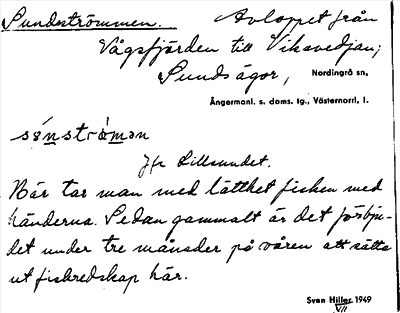 Sundströmmen. Avloppet från
Vågsfjärden till Viksvedjan;
Sundsägor, Nordingrå sn,
Ångermanl. s. doms. tg., Västernorrl. l.
Jfr Lillsundet.
Här tar man med lätthet fisken med
händerna. Sedan gammalt är det förbju-
det under tre månader på våren att sätta
ut fiskredskap här.
Sven Hiller 1949
VII